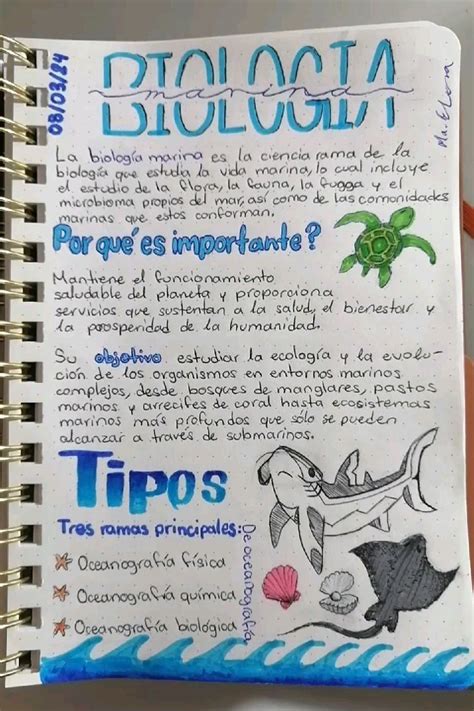 08/03/24
BIOLOGIA
marina
Ma. E Lora
La biología marina es la ciencia rama de la
biología que estudia la vida marina, lo cual incluye
el estudio de la flora, la fauna, la fugga y el
microbioma propios del mar, así como de las comunidades
marinas que estos conforman.
Por qué es importante?
Mantiene el funcionamiento
saludable del planeta y proporciona
servicios que sustentan a la salud, el bienestar y
la prosperidad de la humanidad.
Su objetivo estudiar la ecología y la evolu-
ción de los organismos en entornos marinos
complejos, desde bosques de manglares, pastos
marinos y arrecifes de coral hasta ecosistemas
marinos más profundos que sólo se pueden
alcanzar a través de submarinos.
Tipos
Tres ramas principales:
De oceanografía
Oceanografía física
Oceanografía química
Oceanografía biológica